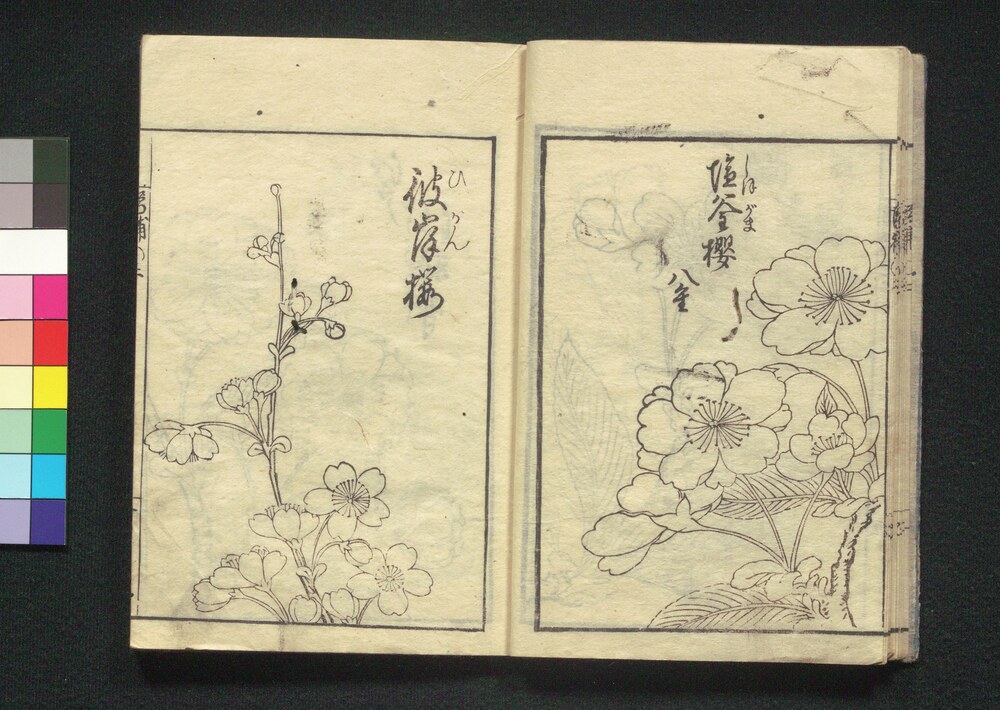 塩釜櫻
しほがま
八重
彼岌櫻
ひがん